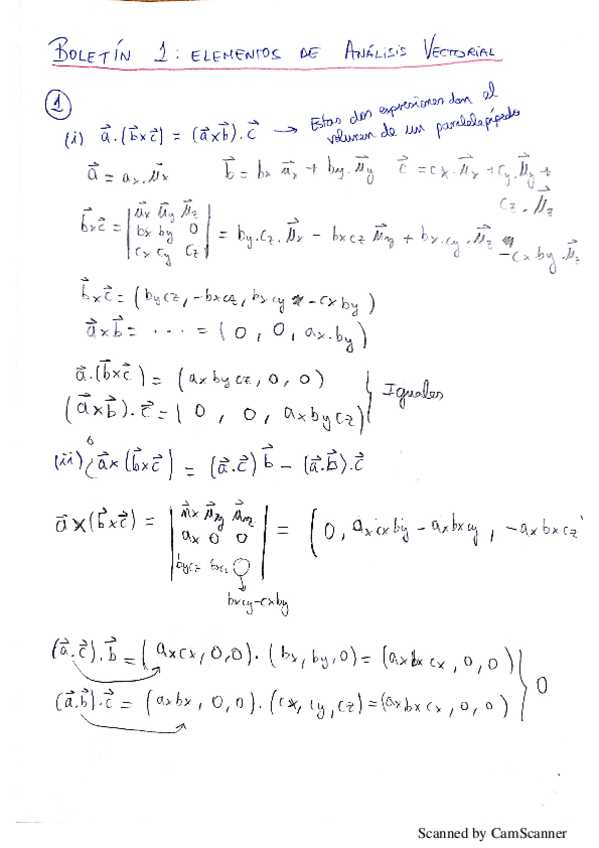 BOLETÍN 1: ELEMENTOS DE ANÁLISIS VECTORIAL
①
(i) a⃗.(b⃗xc⃗) = (a⃗xb⃗).c⃗ → Estas dos expresiones dan el
volumen de un paralelepípedo
a⃗ = ax.μ⃗x b⃗ = bx μ⃗x + by.μ⃗y c⃗ = cx.μ⃗x + cy.μ⃗y +
cz.μ⃗z
b⃗xc⃗ = | μ⃗x μ⃗y μ⃗z | = by.cz.μ⃗x - bxcz μ⃗y + bx.cy.μ⃗z
| bx by 0 | - cx by.μ⃗z
| cx cy cz |
b⃗xc⃗ = (bycz, -bxcz, bxcy - cxby)
a⃗xb⃗ = ... = (0, 0, ax.by)
a⃗.(b⃗xc⃗) = (axbycz, 0, 0)
(a⃗xb⃗).c⃗ = (0, 0, axbycz) } Iguales
(ii) ¿a⃗x(b⃗xc⃗) = (a⃗.c⃗)b⃗ - (a⃗.b⃗).c⃗
a⃗x(b⃗xc⃗) = | μ⃗x μ⃗y μ⃗z | = (0, axcxby - axbxcy, -axbxcz
| ax 0 0 |
| bycz bxcz |
bxcy-cxby
(a⃗.c⃗).b⃗ = (axcx, 0, 0).(bx, by, 0) = (axbxcx, 0, 0)
(a⃗.b⃗).c⃗ = (axbx, 0, 0).(cx, cy, cz) = (axbxcx, 0, 0) } 0
Scanned by CamScanner